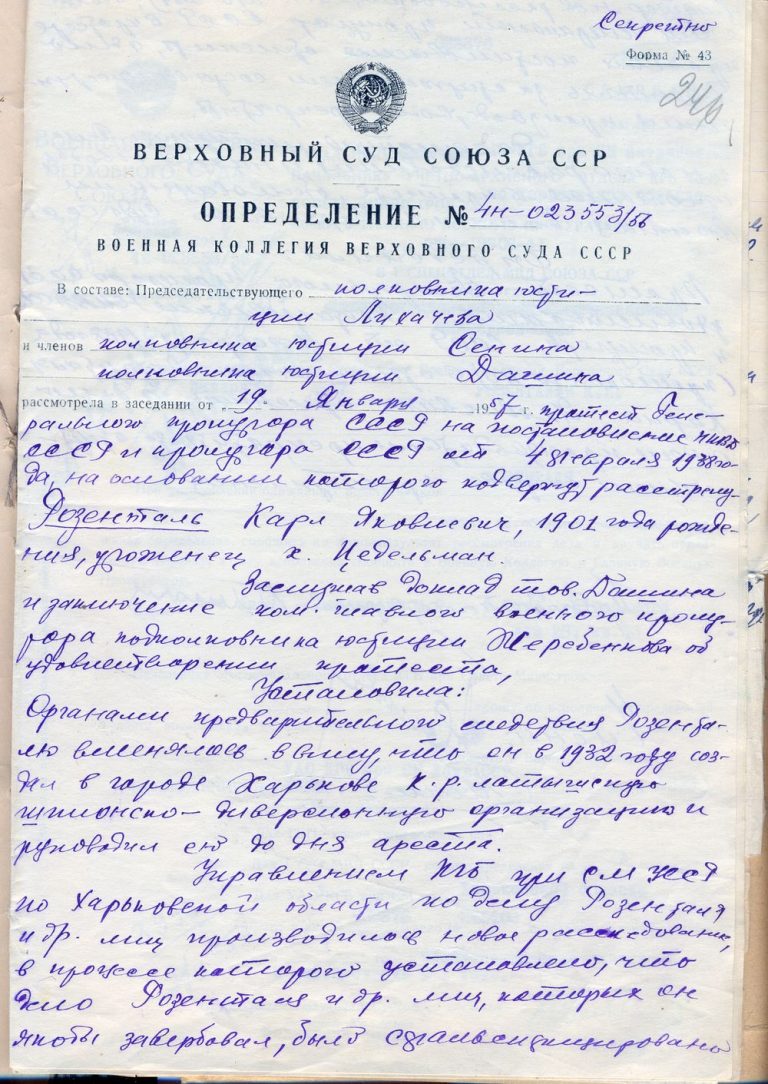 Секретно
Форма № 43
240
ВЕРХОВНЫЙ СУД СОЮЗА ССР
ОПРЕДЕЛЕНИЕ № 4н-023553/56
ВОЕННАЯ КОЛЛЕГИЯ ВЕРХОВНОГО СУДА СССР
В составе: Председательствующего полковника юсти-
ции Лихачева
и членов полковника юстиции Сенина
полковника юстиции Дашина
рассмотрела в заседании от 19 Января 1957 г. протест Гене-
рального прокурора СССР на постановление НКВД
СССР и прокурора СССР от 4 февраля 1938 го-
да, на основании которого подвергнут расстрелу
Розенталь Карл Яковлевич, 1901 года рожде-
ния, уроженец х. Цедельман.
Заслушав доклад тов. Дашина
и заключение пом. главного военного проку-
рора подполковника юстиции Жеребенкова об
удовлетворении протеста,
Установила:
Органами предварительного следствия Розента-
лю вменялось в вину, что он в 1932 году соз-
дал в городе Харькове к.р. латышскую
шпионско-диверсионную организацию и
руководил ею до дня ареста.
Управлением КГБ при СМ УССР
по Харьковской области по делу Розенталя
и др. лиц производилось новое расследование,
в процессе которого установлено, что
дело Розенталя и др. лиц, которых он
якобы завербовал, было сфальсифицировано